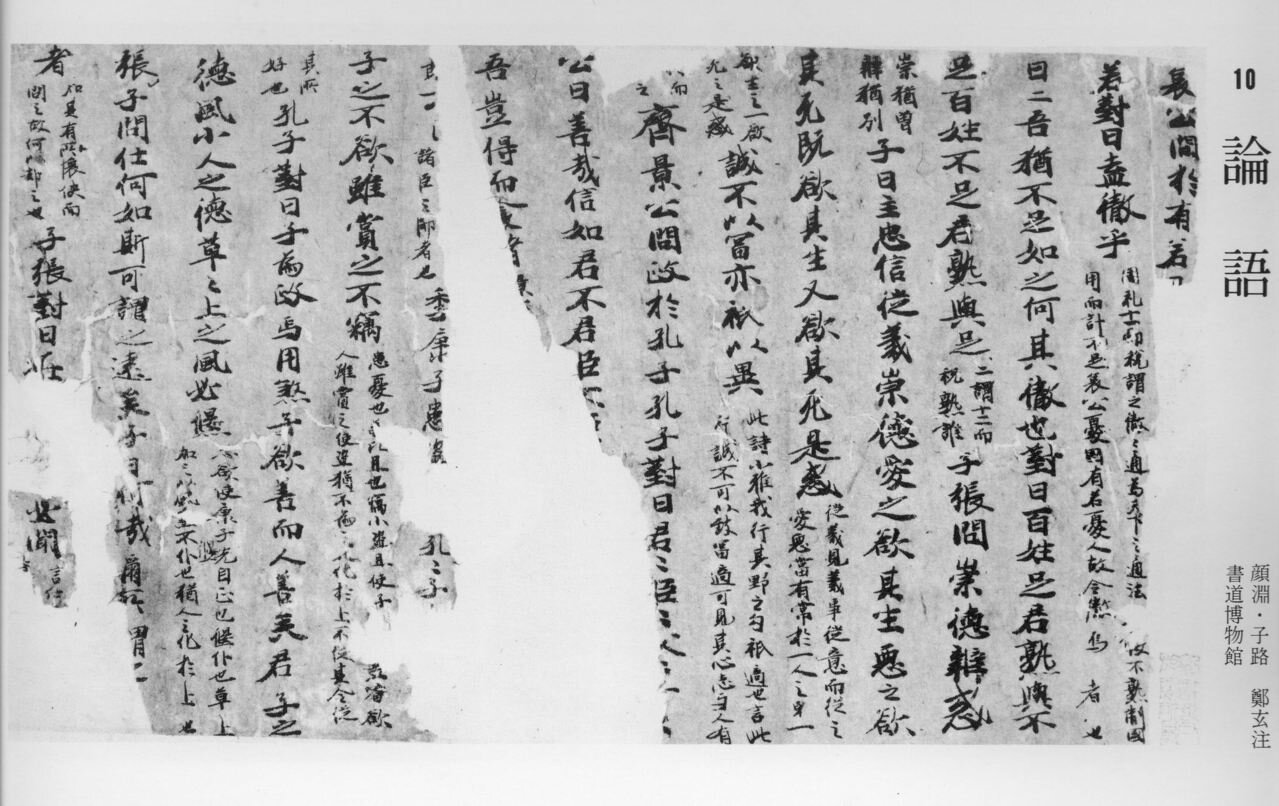 10 論語
顔淵・子路 鄭玄注
書道博物館
哀公問於有若曰
若對曰盍徹乎 周礼十一而税謂之徹徹通為天下之通法
用而計不足哀公憂國有若憂人故令 焉 者也
曰二吾猶不足如之何其徹也對曰百姓足君熟與不
足百姓不足君熟與足 二謂十二而
税熟誰 子張問崇德辯惑
崇猶曽
辯猶別 子曰主忠信從義崇德愛之欲其生惡之欲
其死既欲其生又欲其死是惑 從義見義事從意而從之
愛惡當有常於一人之身一
欲生之一欲
死之是惑 誠不以冨亦祇以異 此詩小雅我行其野之勾祇適也言此
行誠不可以致冨適可見其心志与人有
以而
之 齊景公問政於孔子孔子對曰君〻臣〻父〻
公曰善哉信如君不君臣不臣
吾豈得而食諸
諸臣之師者也 季康子患盗 孔〻子
子之不欲雖賞之不竊 患憂也 且也竊小盗且使子
人雖賞之使盗猶不為 化於上不從其令從
其所
好也 孔子對曰子為政焉用煞子欲善而人善矣君子之
德風小人之德草〻上之風必偃 欲使康子先自正也偃仆也草上
加之 不仆也猶人之化於上也
張子問仕何如斯可謂之達矣子曰何哉爾 謂
者 知其有所 使而
問之故何 之也 子張對曰在
必聞 言仕